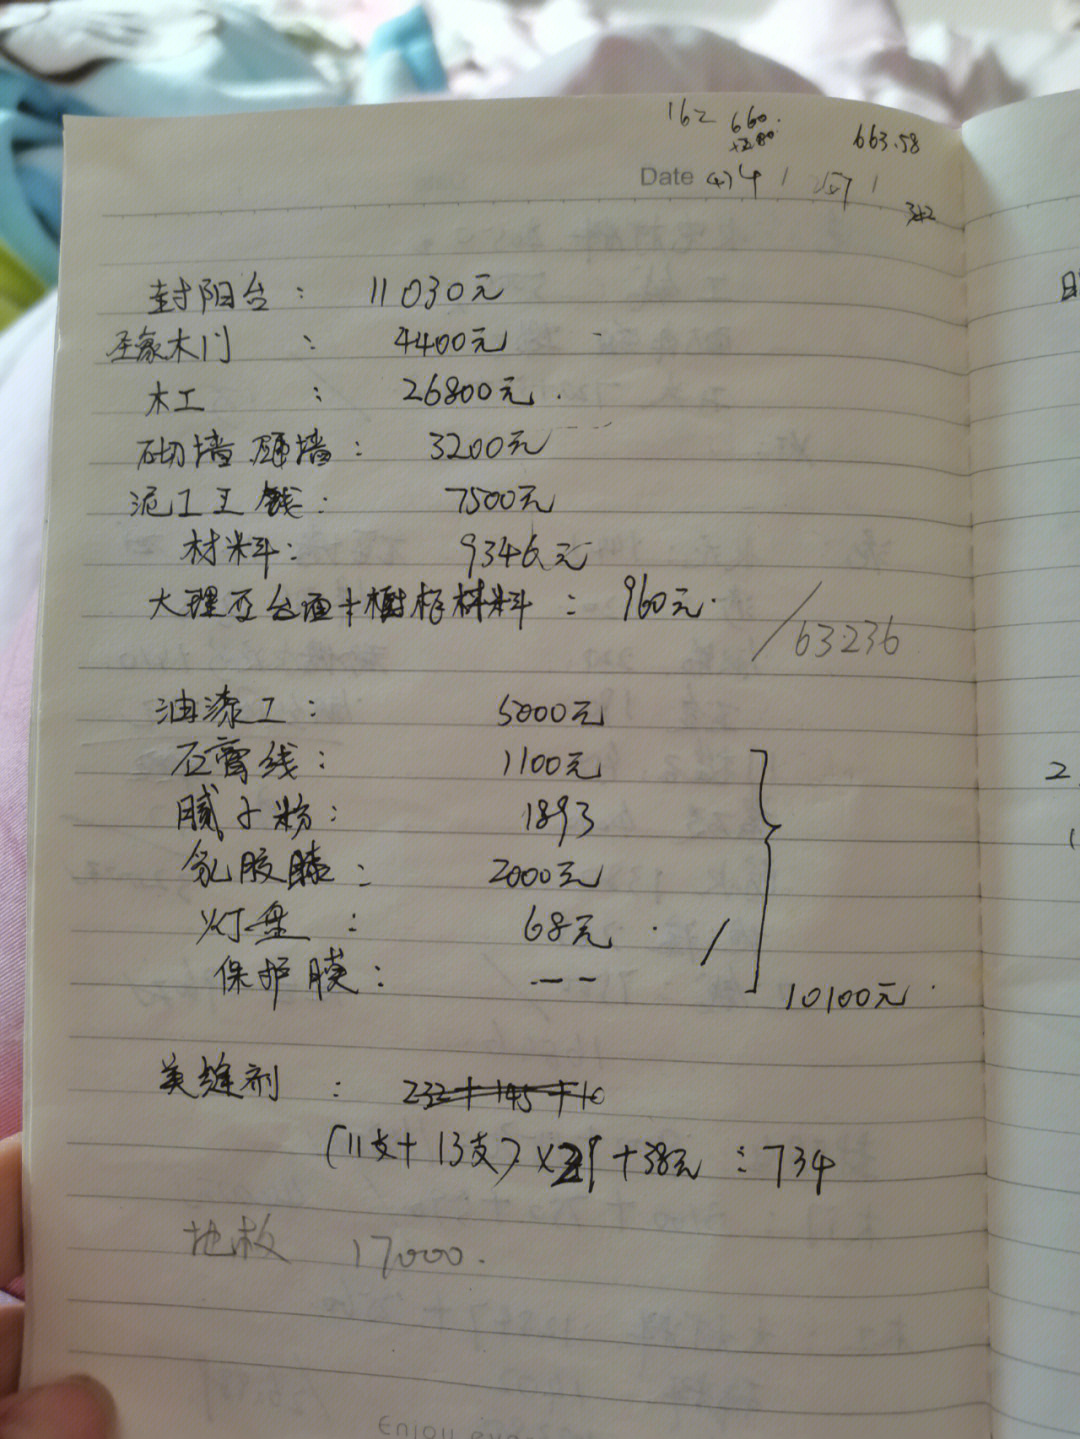 162 660. 663.58
+280
Date
342
封阳台： 11030元
圣象木门 ： 4400元
木工 ： 26800元.
砌墙 砸墙： 3200元
泥工工钱： 7500元
材料： 9346元
大理石台面+橱柜材料： 960元.
/63236
油漆工： 5000元
石膏线： 1100元
腻子粉： 1893
乳胶膝： 2000元
灯盘 ： 68元. /
保护膜： ---
10100元.
美缝剂 ： 232+145+10
(11支+13支)×29+38元 = 734
地板 17000.
2
1